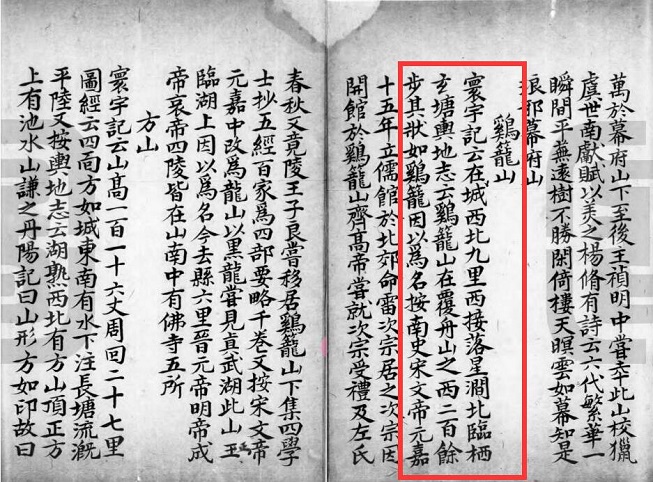 萬於幕府山下至後王禎明中嘗幸此山校獵
虞世南獻賦以美之楊脩有詩云六代繁華一
瞬間平蕪遠樹不勝閑倚樓天暝雲如幕知是
琅邪幕府山
鷄籠山
寰宇記云在城西北九里西接落星澗北臨栖
玄塘輿地志云鷄籠山在覆舟山之西二百餘
步其狀如鷄籠因以爲名按南史宋文帝元嘉
十五年立儒館於北郊命雷次宗居之次宗因
開館於鷄籠山齊髙帝嘗就次宗受禮及左氏
春秋又竟陵王子良嘗移居鷄籠山下集四學
士抄五經百家爲四部要略千卷又按宋文帝
元嘉中改爲龍山以黑龍嘗見真武湖此山
臨湖上因以爲名今去縣六里晉元帝明帝成
帝哀帝四陵皆在山南中有佛寺五所
方山
寰宇記云山髙一百一十六丈周回二十七里
圖經云四面方如城東南有水下注長塘流溉
平陸又按輿地志云湖熟西北有方山頂正方
上有池水山謙之丹陽記曰山形方如印故曰